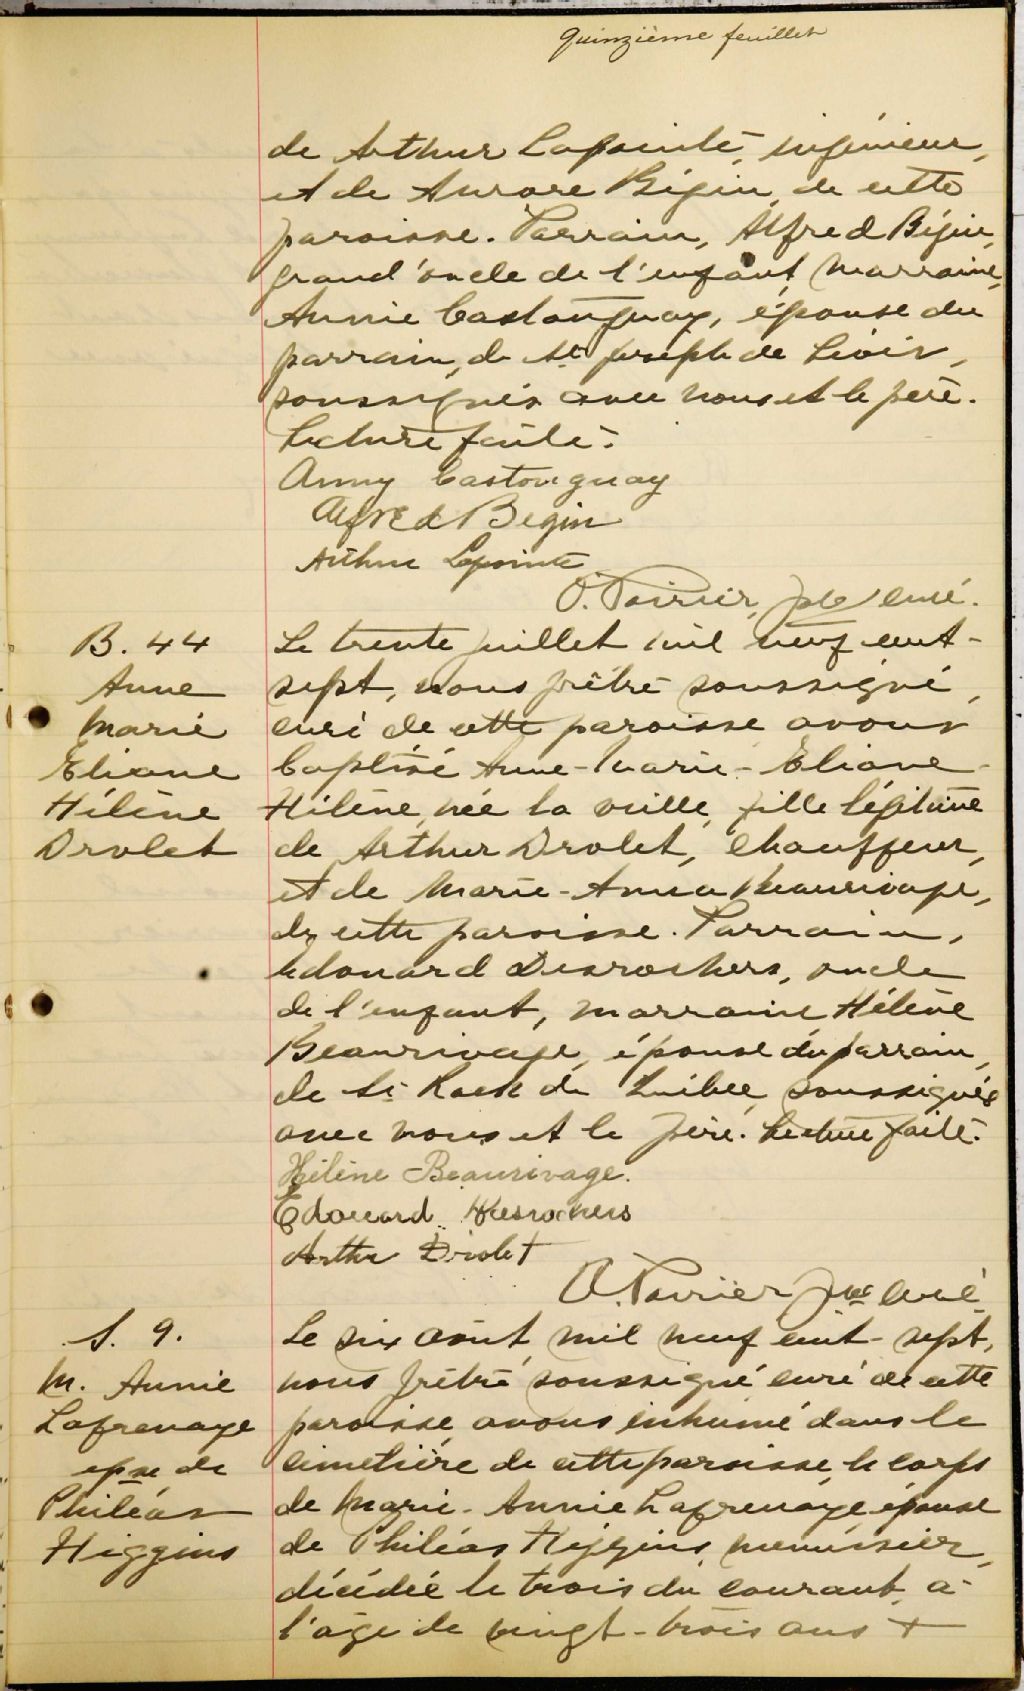 quinzième feuillet
de Arthur Lapointe, ingénieur,
et de Aurore Bégin, de cette
paroisse. Parrain, Alfred Bégin,
grand'oncle de l'enfant, marraine,
Annie Castonguay, épouse du
parrain, de St Joseph de Lévis,
soussignés avec nous et le père.
Lecture faite.
Anny Castonguay
Alfred Begin
Arthur Lapointe
O. Poirier, ptre curé.
B. 44
Anne
Marie
Eliane
Hélène
Drolet
Le trente juillet mil neuf cent-
sept, nous prêtre soussigné,
curé de cette paroisse avons
baptisé Anne-Marie-Eliane-
Hélène, née la veille, fille légitime
de Arthur Drolet, chauffeur,
et de Marie-Anna Beaurivage,
de cette paroisse. Parrain,
Edouard Desrochers, oncle
de l'enfant, marraine Hélène
Beaurivage, épouse du parrain,
de St Roch de Québec, soussignés
avec nous et le père. Lecture faite.
Hélène Beaurivage.
Edouard Desrochers
Arthur Drolet
O. Poirier ptre curé
S. 9.
M. Annie
Lafrenaye
epse de
Philéas
Higgins
Le six août, mil neuf cent-sept,
nous prêtre soussigné curé de cette
paroisse, avons inhumé dans le
cimetière de cette paroisse, le corps
de Marie-Annie Lafrenaye, épouse
de Philéas Higgins, menuisier,
décédée le trois du courant, à
l'âge de vingt-trois ans +